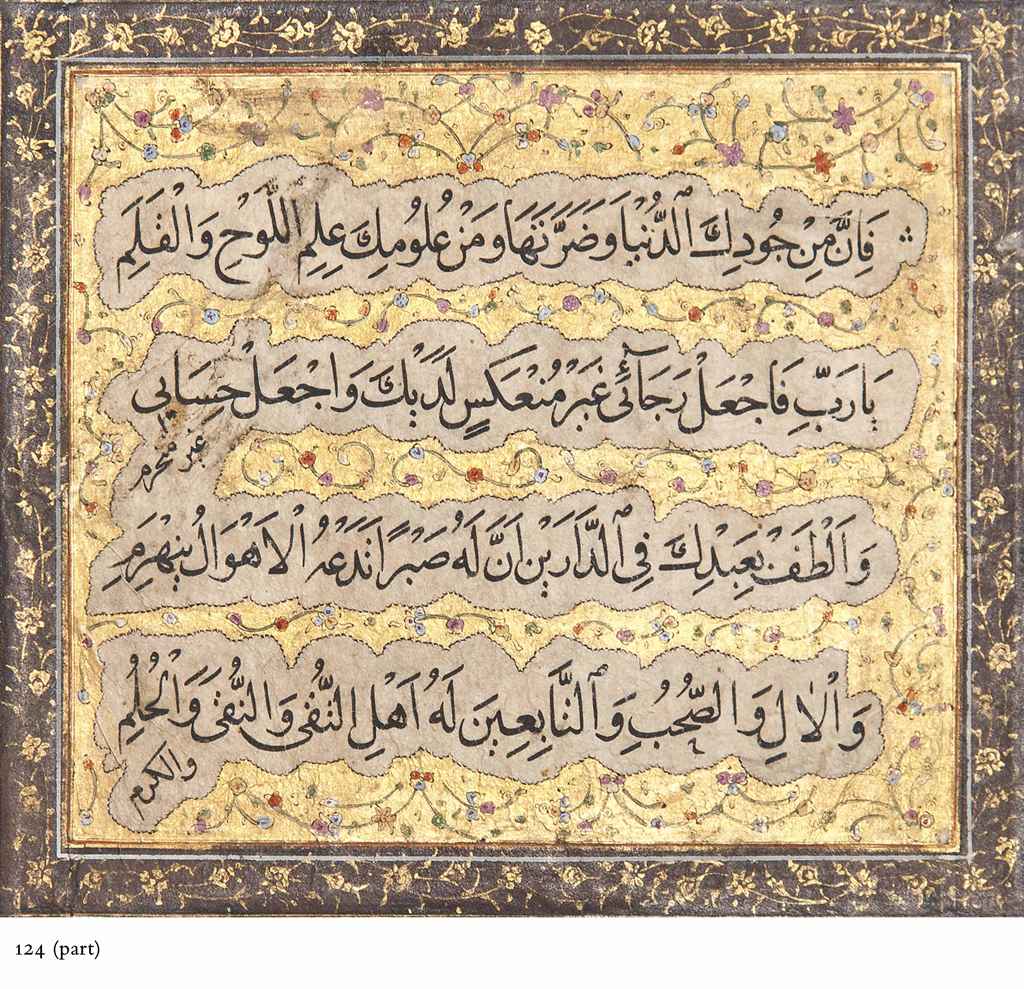 فَاِنَّ مِنْ جُودِكَ الدُّنْيَا وَضَرَّتَهَا وَمِنْ عُلُومِكَ عِلْمِ اللَّوْحِ وَالْقَلَمِ
يَارَبِّ فَاجْعَلْ رَجَائِي غَيْرَ مُنْعَكِسٍ لَدَيْكَ وَاجْعَلْ حِسَابِي
غير منخرم
وَالْطُفْ بِعَبْدِكَ فِي الدَّارَيْنِ اِنَّ لَهُ صَبْرًا تَدْعُهُ الْاَهْوَالُ يَنْهَزِمِ
وَالْاٰلِ وَالصَّحْبِ وَالتَّابِعِينَ لَهُ اَهْلِ التُّقَى وَالنُّقَى وَالْحُلْمِ
والكرم
124 (part)